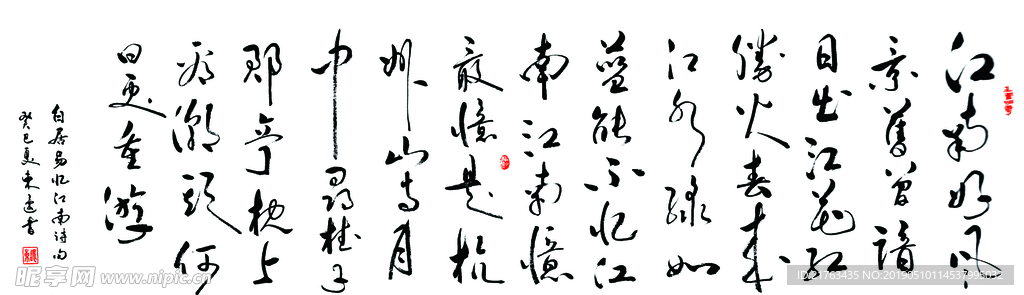 江南好风
景旧曾谙
日出江花红
胜火春来
江水绿如
蓝能不忆江
南江南忆
最忆是杭
州山寺月
中寻桂子
郡亭枕上
看潮头何
日更重游
白居易忆江南诗句
癸巳夏东建书
昵享网 www.nipic.cn
ID:21763435 NO:20190510114537998032